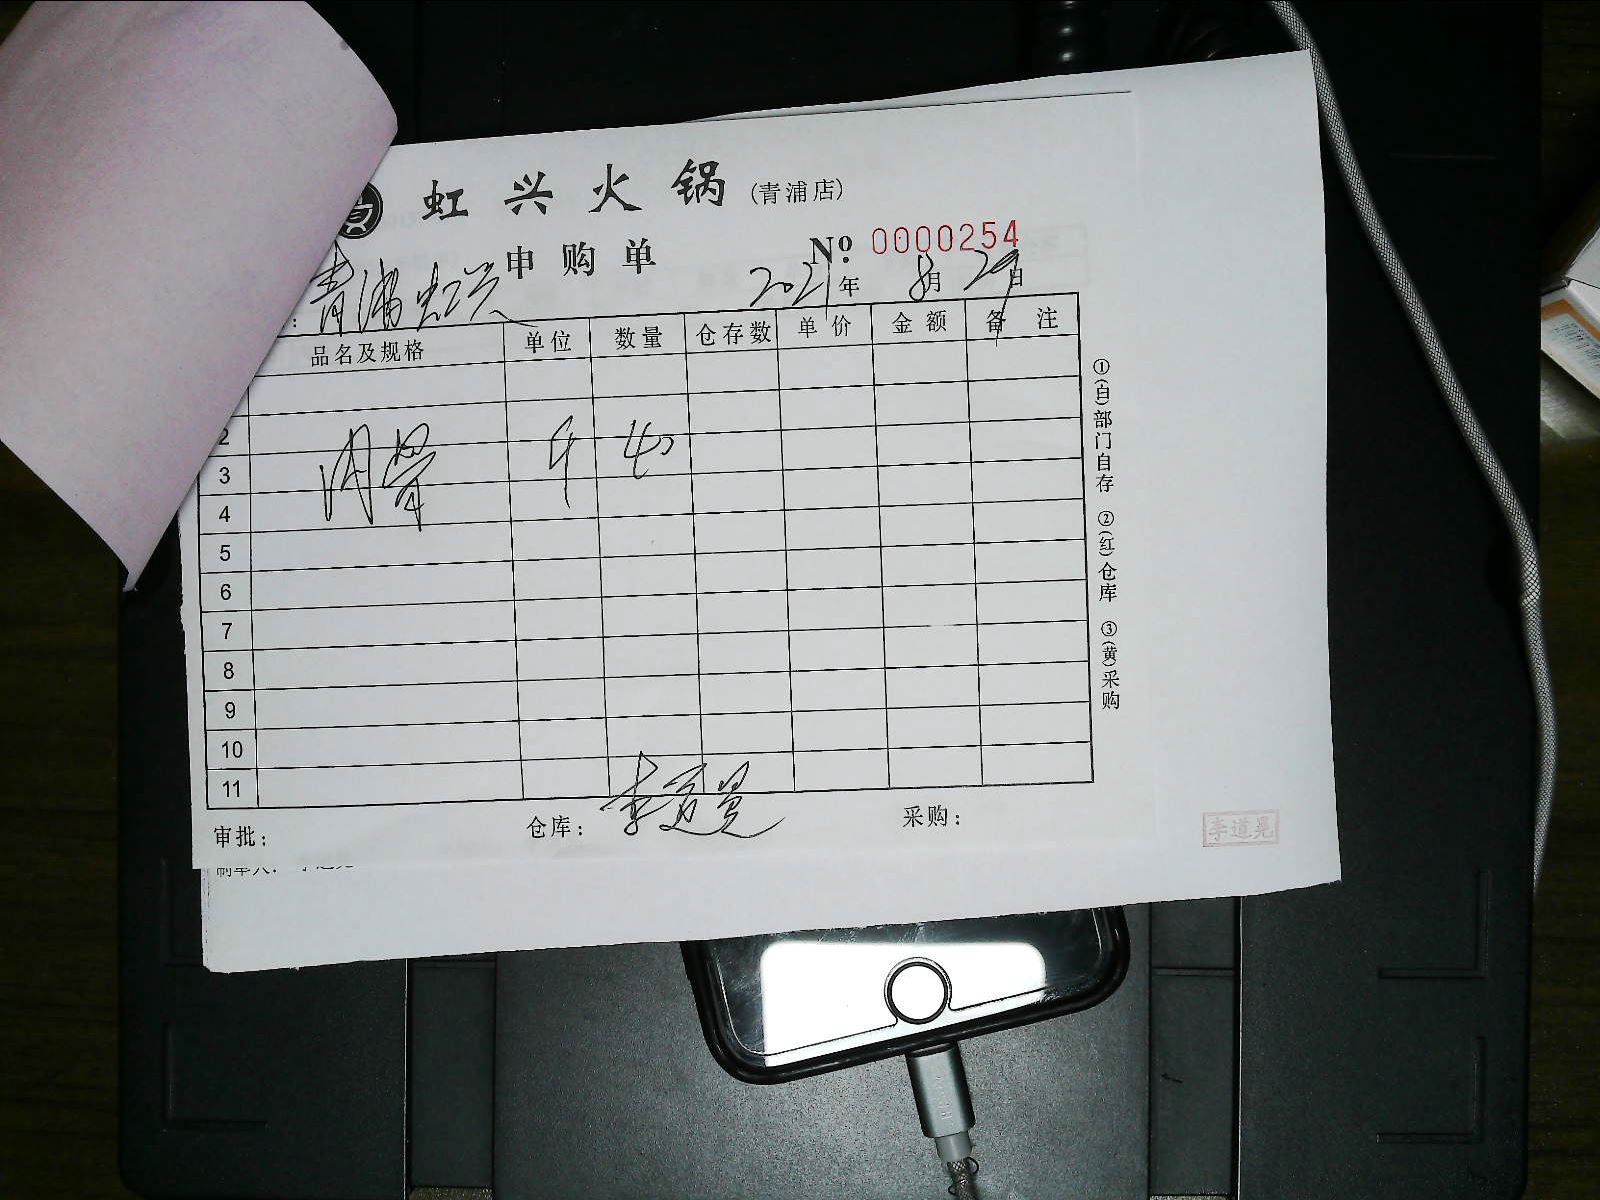 虹兴火锅(青浦店)
申购单 Nº: 0000254
：青浦虹兴 2021年8月29日
品名及规格 单位 数量 仓存数 单价 金额 备注
2
3 斤 40
4
5
6
7
8
9
10
11
审批： 仓库：李道晃 采购：
①(白)部门自存 ②(红)仓库 ③(黄)采购
李道晃